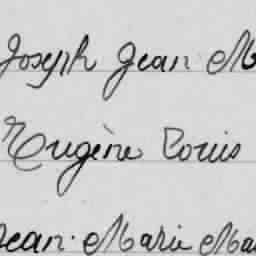 Joseph Jean M
Eugène Louis
Jean Marie Ma